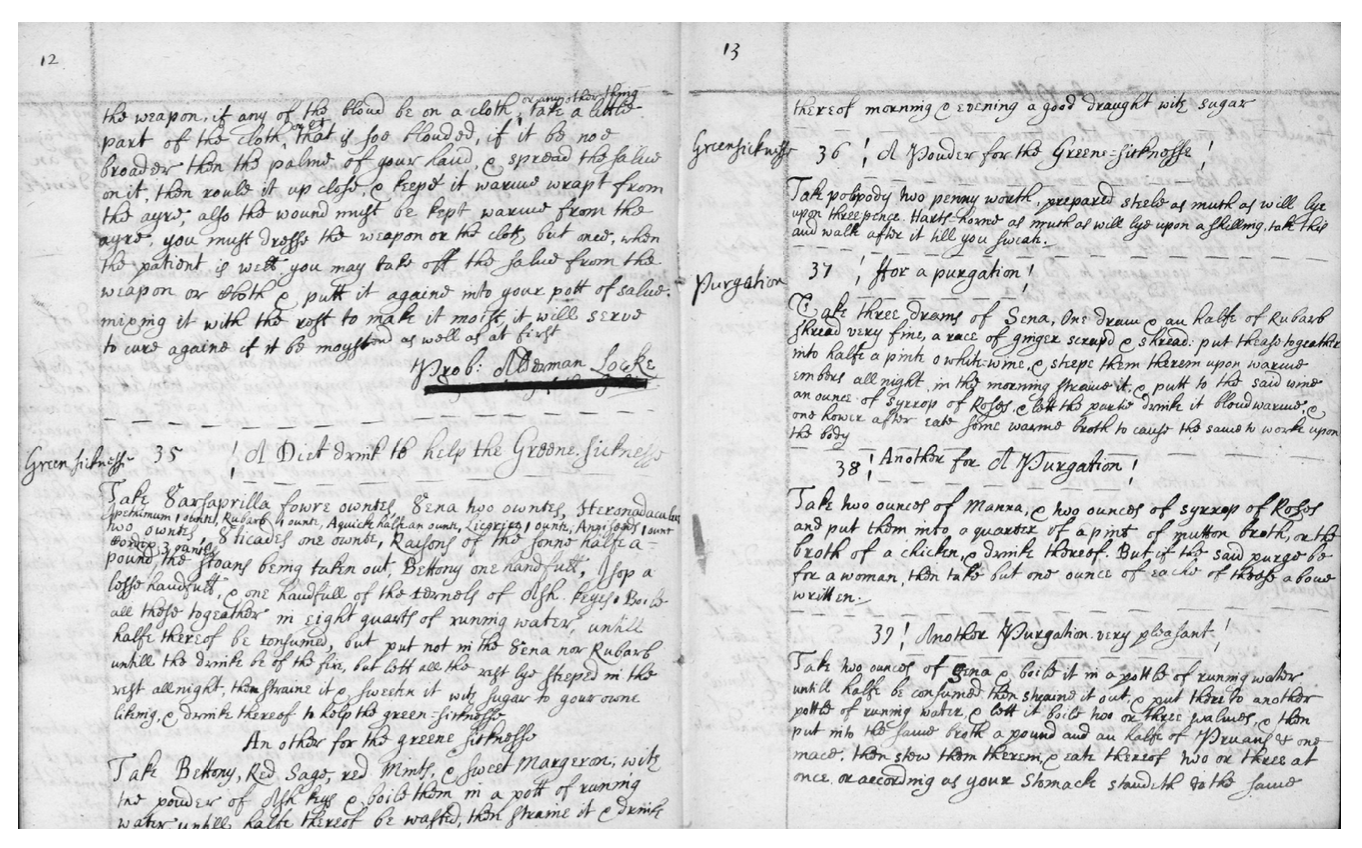 12
the weapon, if any of the bloud be on a cloth, or any other thing take a little
part of the cloth, or et that is soe blouded, if it be noe
broader then the palme of your hand, & spread the salue
on it, then roule it up close, & keepe it warme wrapt from
the ayre, also the wound must be kept warme from the
ayre, you must dresse the weapon or the cloth, but once, when
the patient is well, you may take off the salue from the
weapon or cloth &, putt it againe into your pott of salue,
mixing it with the rest to make it moist, it will serve
to cure againe if it be moystend as well as at first
Prob: Alderman Locke
Green sicknesse 35 ! A Diet drink to help the Greene-sicknesse
Take Sarsaprilla fowre ownces, Sena two ownces,
Epethimum 1 ounce, Rubarb 1 ounce, halfe an ounce, 1 ounce, 1 ounce
two ownces, Sticades one ownce, Raisons of the sonne halfe a
pound, the stoans being taken out, Bettony one handfull, Isop a
lesse handfull, & one handfull of the cernels of Ash-keyes, Boile
all these togeather in eight quarts of runing water, untill
halfe thereof be consumed, but put not in the Sena nor Rubarb
untill the drinke be of the fire, but lett all the rest lye steeped in the
rest all night, then straine it & sweeten it with sugar to your owne
likeing, & drinke thereof to help the green-sicknesse
An other for the greene sicknesse
Take Bettony, Red Sage, red Mints, & sweet Margeron, with
the powder of Ash keys & boile them in a pott of runing
water untill halfe thereof be wasted, then straine it & drinke
13
thereof morning & evening a good draught with sugar
Greensicknesse 36 ! A Pouder for the Greene-sicknesse !
Take polipody two penny worth, prepared steele as much as will lye
upon three pence. Harts-horne as much as will lye upon a shilling, take this
and walk after it till you sweat.
Purgation 37 ! ffor a purgation !
Take three drams of Sena, One dram & an halfe of Rubarb
shread very fine, a race of ginger scrapd & shread: put these togeather
into halfe a pinte o white-wine, & steepe them therein upon warme
embers all night, in the morning straine it, & putt to the said wine
an ounce of syrrop of Roses, & lett the partie drinke it bloudwarme, &
one hower after eate some warme broth to cause the same to worke upon
the body
38 ! Another for A Purgation !
Take two ounces of Manna, & two ounces of syrrop of Roses
and put them into a quarter of a pint of mutton broth, or the
broth of a chicken, & drinke thereof. But if the said purge be
for a woman, then take but one ounce of eache of these above
written.
39 ! Another Purgation very pleasant !
Take two ounces of Sena & boile it in a pottle of runing water
untill halfe be consumed then straine it out, & put there to another
pottle of runing water, & lett it boile two or three walmes, & then
put into the same broth a pound and an halfe of Pruans & one
mace, then stew them therein, & eate thereof two or three at
once, or according as your stomack standeth to the same